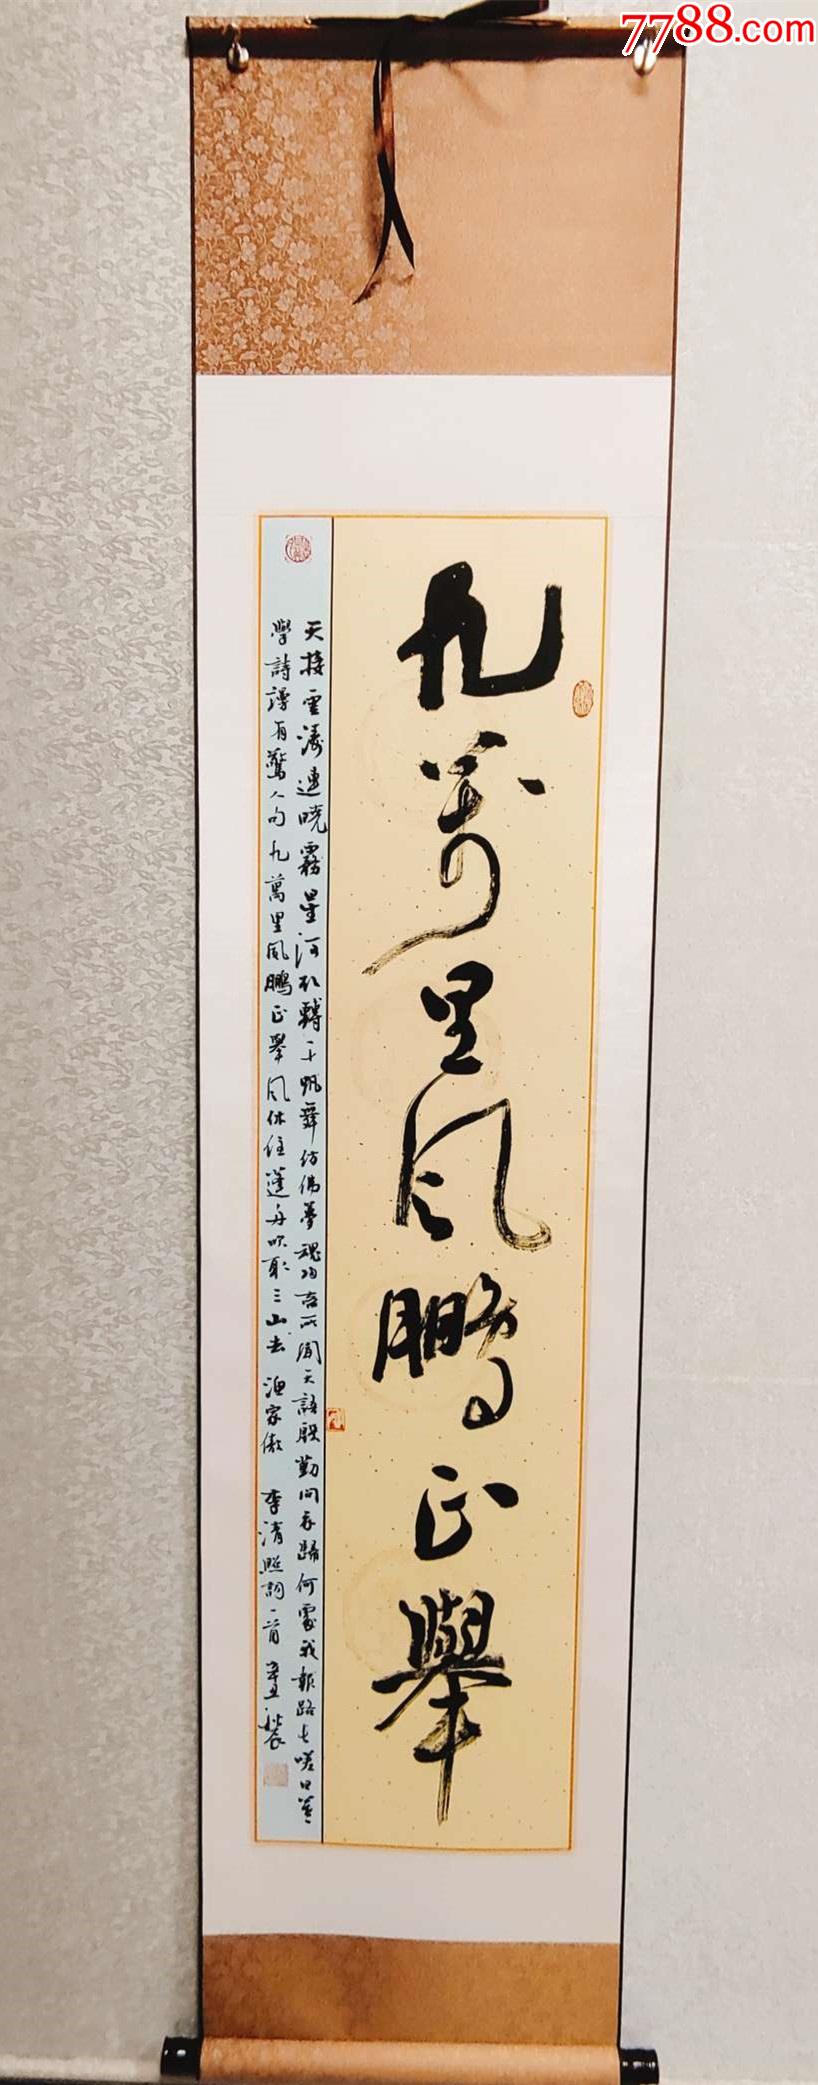 7788.com
九萬里風鵬正舉
天接雲濤連曉霧星河欲轉千帆舞仿佛夢魂歸帝所聞天語殷勤問我歸何處我報路長嗟日暮
學詩謾有驚人句九萬里風鵬正舉風休住蓬舟吹取三山去 漁家傲 李清照詞一首 辛丑